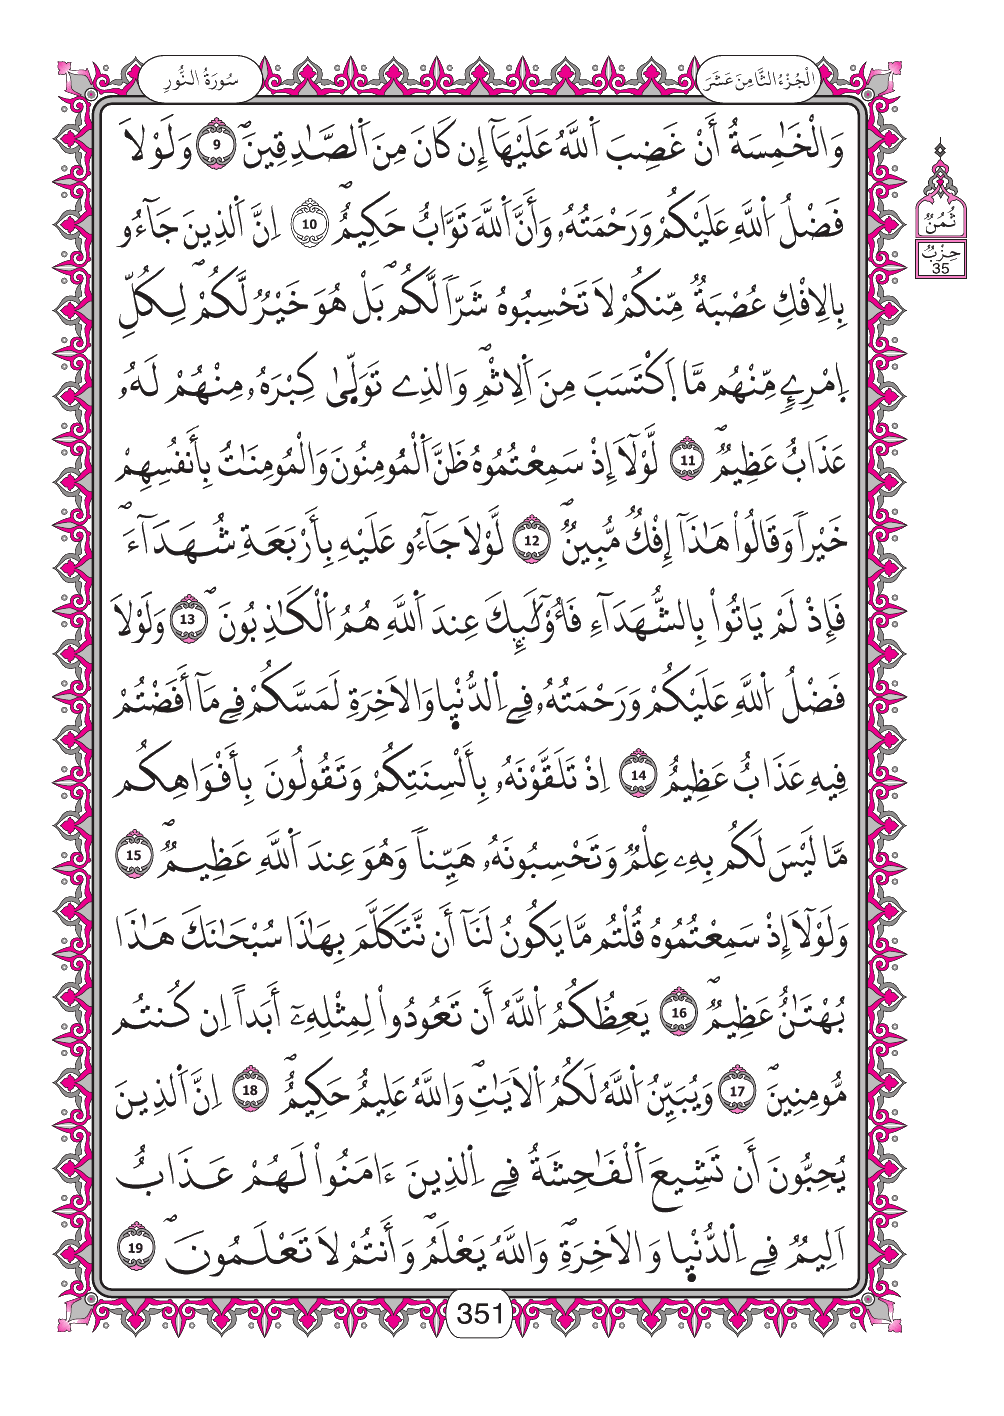 سُورَةُ النُّورِ
الْجُزْءُ الثَّامِنَ عَشَرَ
وَالْخَٰمِسَةُ أَنْ غَضِبَ اَ۬للَّهُ عَلَيْهَآ إِن كَانَ مِنَ اَ۬لصَّٰدِقِينَۖ 9 وَلَوْلَا
فَضْلُ اُ۬للَّهِ عَلَيْكُمْ وَرَحْمَتُهُۥ وَأَنَّ اَ۬للَّهَ تَوَّابٌ حَكِيمٌۖ 10 اِنَّ اَ۬لذِينَ جَآءُو
بِالِافْكِ عُصْبَةٌ مِّنكُمْ لَا تَحْسِبُوهُ شَرّاٗ لَّكُمۖ بَلْ هُوَ خَيْرٞ لَّكُمْۖ لِكُلِّ
اِ۪مْرِےٕٖ مِّنْهُم مَّا اَ۪كْتَسَبَ مِنَ اَ۬لِاثْمِۖ وَالذِے تَوَلّ۪ىٰ كِبْرَهُۥ مِنْهُمْ لَهُۥ
عَذَابٌ عَظِيمٞۖ 11 لَّوْلَآ إِذْ سَمِعْتُمُوهُ ظَنَّ اَ۬لْمُومِنُونَ وَالْمُومِنَٰتُ بِأَنفُسِهِمْ
خَيْراٗ وَقَالُواْ هَٰذَآ إِفْكٞ مُّبِينٞۖ 12 لَّوْلَا جَآءُو عَلَيْهِ بِأَرْبَعَةِ شُهَدَآءَۖ
فَإِذْ لَمْ يَاتُواْ بِالشُّهَدَآءِ فَأُوْلَٰٓئِكَ عِندَ اَ۬للَّهِ هُمُ اُ۬لْكَٰذِبُونَۖ 13 وَلَوْلَا
فَضْلُ اُ۬للَّهِ عَلَيْكُمْ وَرَحْمَتُهُۥ فِے اِ۬لدُّنْي۪ا وَالَاخِرَةِ لَمَسَّكُمْ فِے مَآ أَفَضْتُمْ
فِيهِ عَذَابٌ عَظِيمٌ 14 اِذْ تَلَقَّوْنَهُۥ بِأَلْسِنَتِكُمْ وَتَقُولُونَ بِأَفْوَاهِكُم
مَّا لَيْسَ لَكُم بِهِۦ عِلْمٞ وَتَحْسِبُونَهُۥ هَيِّناٗ وَهُوَ عِندَ اَ۬للَّهِ عَظِيمٞۖ 15
وَلَوْلَآ إِذْ سَمِعْتُمُوهُ قُلْتُم مَّا يَكُونُ لَنَآ أَن نَّتَكَلَّمَ بِهَٰذَا سُبْحَٰنَكَ هَٰذَا
بُهْتَٰنٌ عَظِيمٞۖ 16 يَعِظُكُمُ اُ۬للَّهُ أَن تَعُودُواْ لِمِثْلِهِۦٓ أَبَداً اِن كُنتُم
مُّومِنِينَۖ 17 وَيُبَيِّنُ اُ۬للَّهُ لَكُمُ اُ۬لَايَٰتِۖ وَاللَّهُ عَلِيمٌ حَكِيمٌۖ 18 اِنَّ اَ۬لذِينَ
يُحِبُّونَ أَن تَشِيعَ اَ۬لْفَٰحِشَةُ فِے اِ۬لذِينَ ءَامَنُواْ لَهُمْ عَذَابٌ
اَلِيمٞ فِے اِ۬لدُّنْي۪ا وَالَاخِرَةِۖ وَاللَّهُ يَعْلَمُۖ وَأَنتُمْ لَا تَعْلَمُونَۖ 19
ثُمُنُ
حِزْبُ
35
351